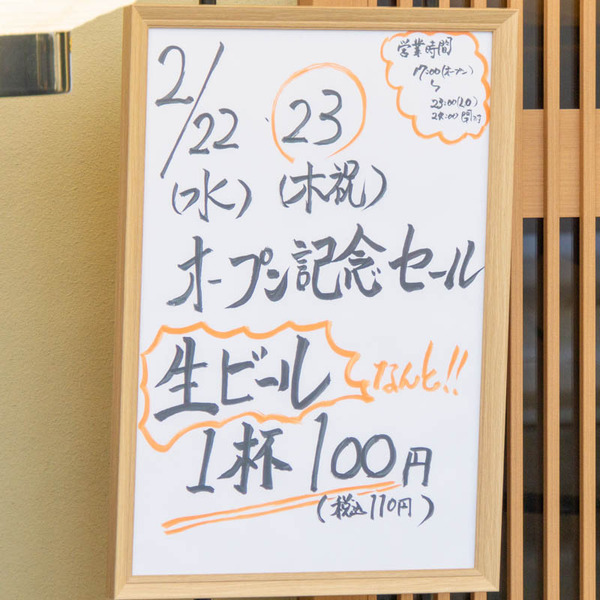 営業時間
17:00(オープン)
23:00(LO)
24:00
2/22 23
(水) (木祝)
オープン記念セール
生ビール なんと!!
1杯100円
(税込110円)